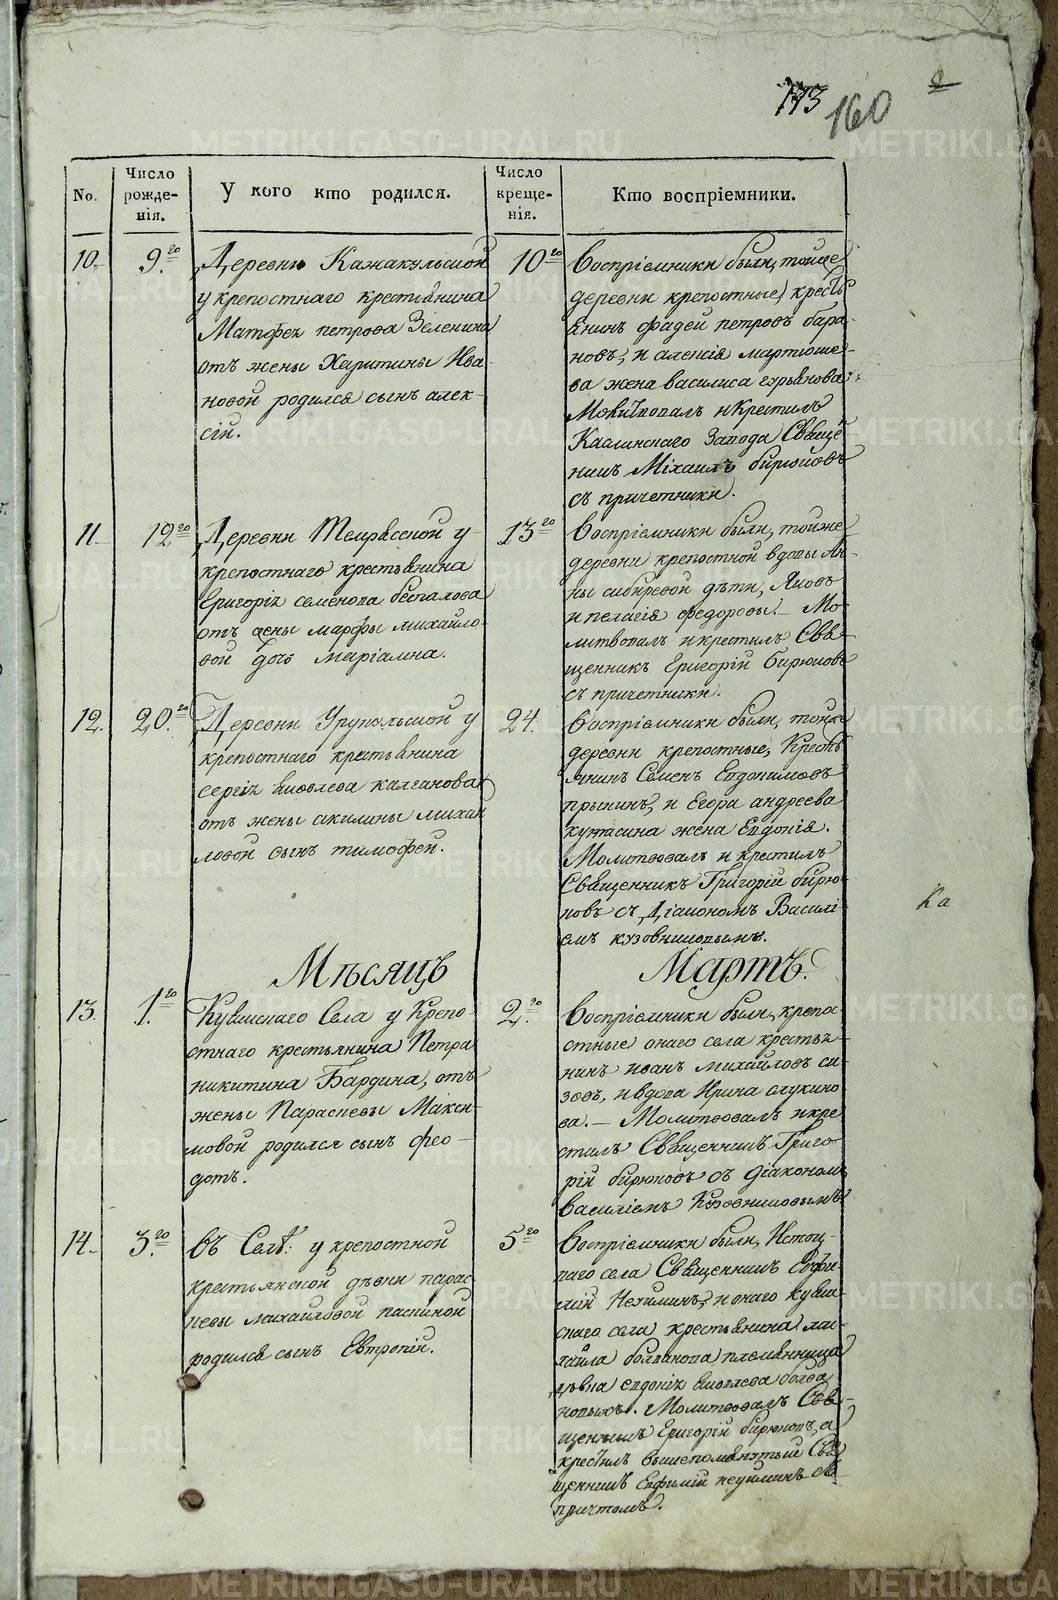 173 160
No.
Число рожденія.
У кого кто родился.
Число крещенія.
Кто воспріемники.
10.
9.го
Деревни Кажакульской
у крепостнаго крестьянина
Матфея петрова Зеленина
отъ жены Харитины Ива-
новой родился сынъ алек-
сій.
10го
Воспріемники были, тойже
деревни крепостные, крестья
янинъ фадей петровъ бара-
новъ, и алексія мартюше-
ва жена василиса гурьянова.
Молитвовалъ и крестилъ
Каслинскаго Завода Священ
никъ Міхаилъ бирюковъ
съ причетники.
11.
12го
Деревни Темрясской у
крепостнаго крестьянина
Григорія семенова беспалова
отъ жены марфы михайло-
вой дочь маріамна.
13го
Воспріемники были, тойже
деревни крепостной вдовы Ан-
ны сибиревой дѣти, Яковъ
и пелагія федоровы. Мо-
литвовалъ и крестилъ Свя-
щенникъ Григорій Бирюковъ
съ причетники.
12.
20.го
Деревни Урукульской у
крепостнаго крестьянина
сергія яковлева калганова
отъ жены акилины михай
ловой сынъ тимофей.
24.
Воспріемники были, тойже
деревни крепостные, Кресть
янинъ Семенъ Евдокимовъ
и Егора андреева
жена Евдокія.
Молитвовалъ и крестилъ
Священникъ Григорій бирю-
ковъ съ Діакономъ Василі-
емъ кузовниковымъ.
Мѣсяцъ Мартъ.
13.
1.го
Кувшскаго Села у Крепо-
стнаго крестьянина Петра
никитина Бардина, отъ
жены Параскевы Макси-
мовой родился сынъ фео-
дотъ.
2.го
Воспріемники были, крепо-
стные онаго села крестья-
нинъ иванъ михайловъ си-
зовъ, и вдова Ирина глухино
ва. Молитвовалъ и кре
стилъ Священникъ Григо
рій бирюковъ съ діакономъ
василіемъ Кузовниковымъ
14.
3.го
въ Селѣ: у крепостной
крестьянской дѣвки парас
кевы михайловой
родился сынъ Евтропій.
5го
Воспріемники были,
скаго села Священникъ Евфи-
мій и онаго
скаго села крестьянина ми-
хайла болванова племянница
дѣвка евдокія яковлева болва
новыхъ. Молитвовалъ Свя-
щенникъ Григорій бирюковъ, а
крестилъ вышепомянутый Свя
щенникъ Евфимій съ
причтомъ.
Ка
METRIKI.GASO-URAL.RU